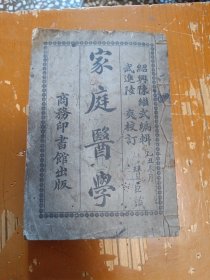 紹興陳繼武編輯
武進陸爽校訂
家庭醫學
商務印書館出版